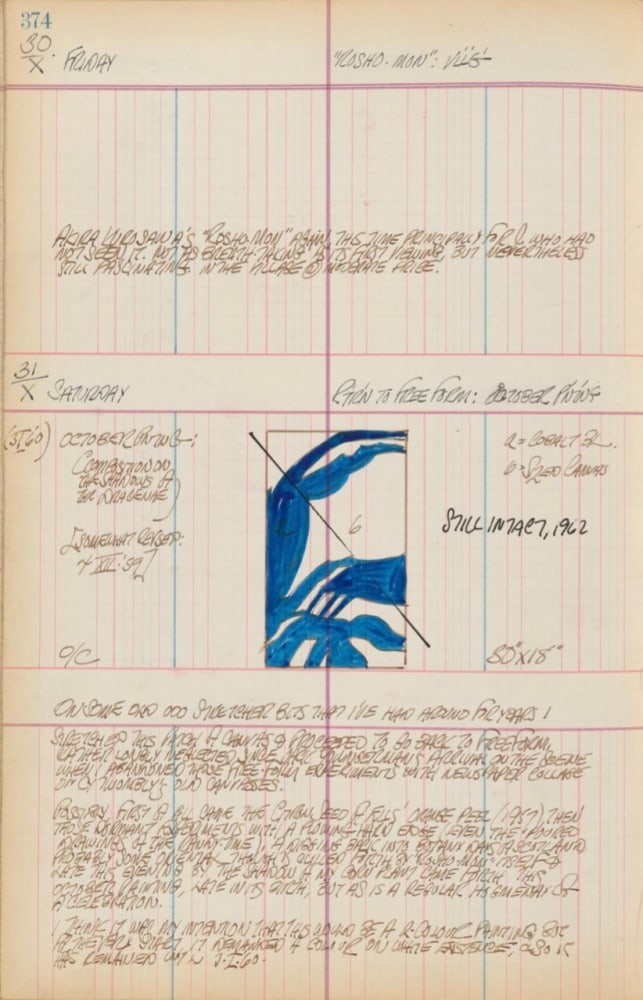 374
30
X FRIDAY "ROSHO-MON":
AKIRA KUROSAWA'S "ROSHO-MON" AGAIN, THIS TIME PRINCIPALLY FOR WHO HAD
NOT SEEN IT. NOT AS BREATH-TAKING AS ITS FIRST VIEWING, BUT NEVERTHELESS
STILL FASCINATING. IN THE VILLAGE @ MODERATE PRICE.
31
X SATURDAY R'T'R'N TO FREE FORM: OCTOBER P'NT'NG
OCTOBER P'NT'NG:
COMBUSTION ON
THE SHADOWS OF
THE DRACENAE
[SOMEWHAT REVISED:
XII '59]
a = COBALT BL.
b = SIZED CANVAS
b
STILL INTACT, 1962
O/C
30" X 18"
ON SOME ODD STRETCHER BITS THAT I'VE HAD AROUND F'R YEARS!
STRETCHED THIS PATCH OF CANVAS & PROCEEDED TO GO BACK TO FREE FORM,
RATHER LONELY NEGLECTED SINCE ARRIVAL ON THE SCENE
WHEN I ABANDONED THOSE FREE-FORM EXPERIMENTS WITH NEWSPAPER COLLAGE
ON CY TWOMBLY'S OLD CANVASSES.
POSSIBLY FIRST OF ALL CAME THE SEED OF ORANGE PEEL (1957), THEN
THOSE DORMANT EXPERIMENTS WITH A FLOWING HARD EDGE (EVEN THE "POURED
DRAWINGS" OF THE ARMY-TIME), A BACK INTO BOTANY
PROBABLY SOME ORIENTAL THOUGHTS CALLED FORTH BY "ROSHO-MON" ITSELF &
LATE THIS EVENING BY THE SHADOW OF MY CORN PLANT CAME FORTH THIS
OCTOBER PAINTING, LATE IN ITS BIRTH, BUT AS IS A REGULAR OF
A CELEBRATION.
I THINK IT WAS MY INTENTION THAT THIS WOULD BE A 2-COLOUR PAINTING BUT
AT THE VERY START, IT DEMANDED A COLOUR ON WHITE EXISTENCE, & SO IT
HAS REMAINED UNTIL 3·I·60.